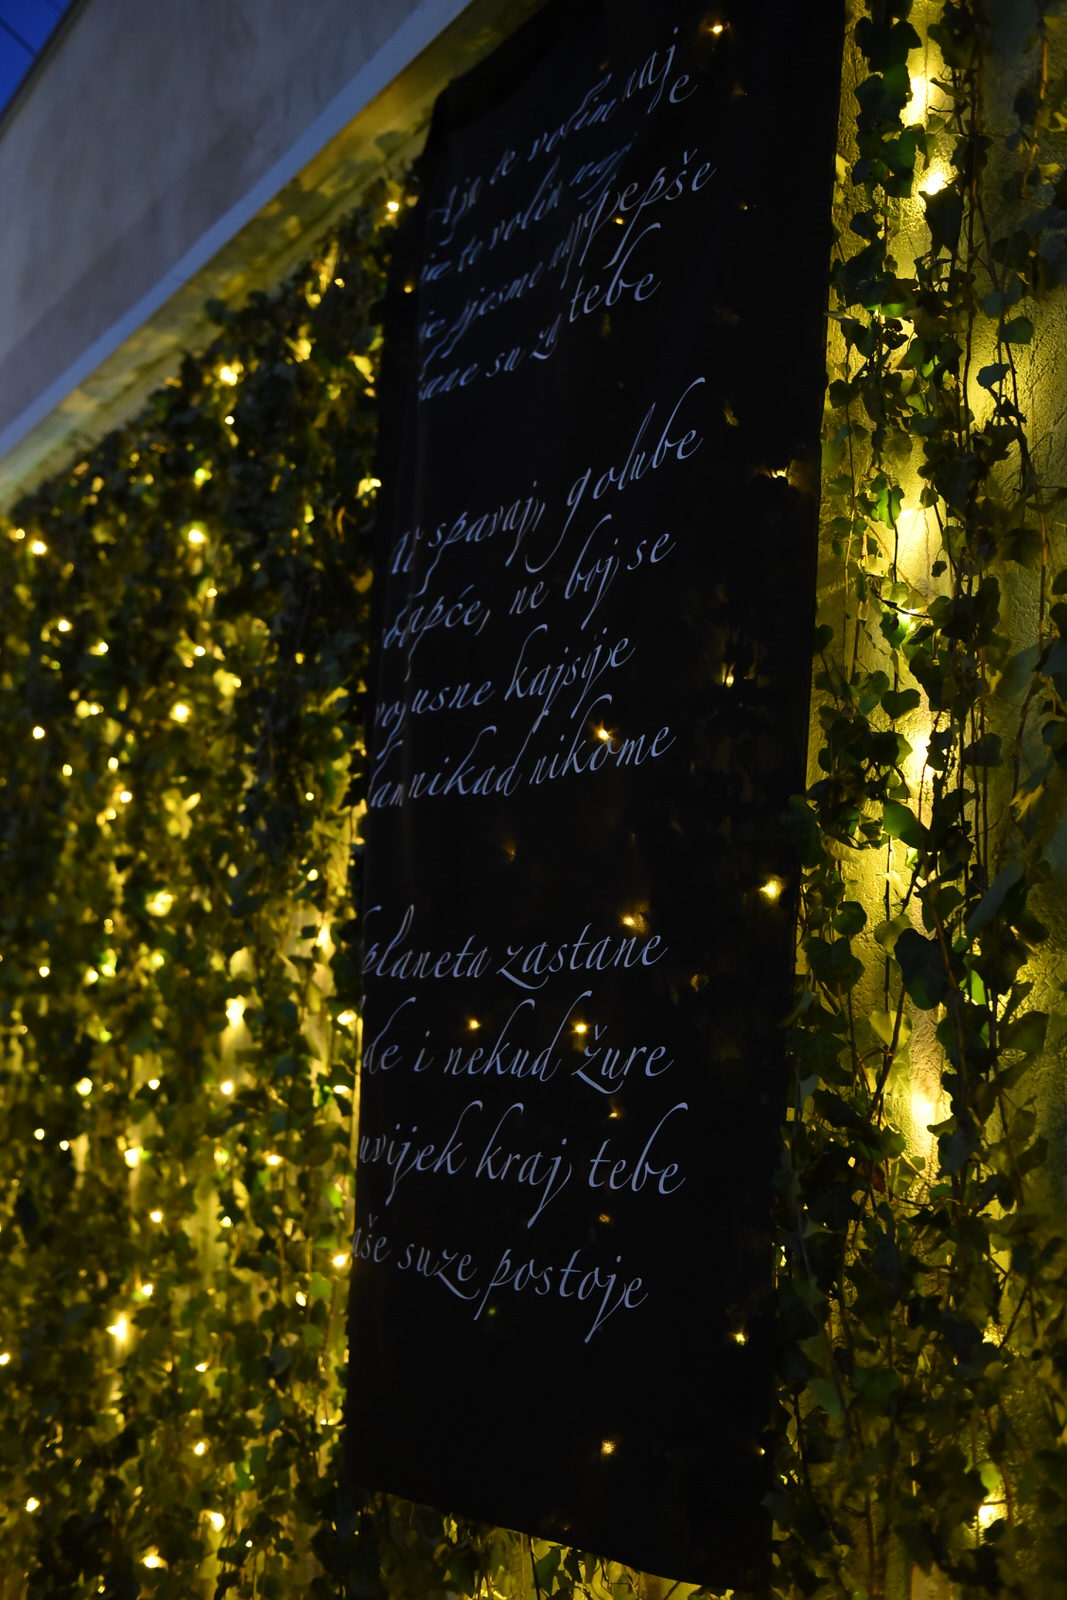 te volim naj
te volim naj
pjesme najljepše
su za tebe
spavaj, golube
ne boj se
usne kajsije
nikad nikome
planeta zastane
i nekud žure
uvijek kraj tebe
suze postoje